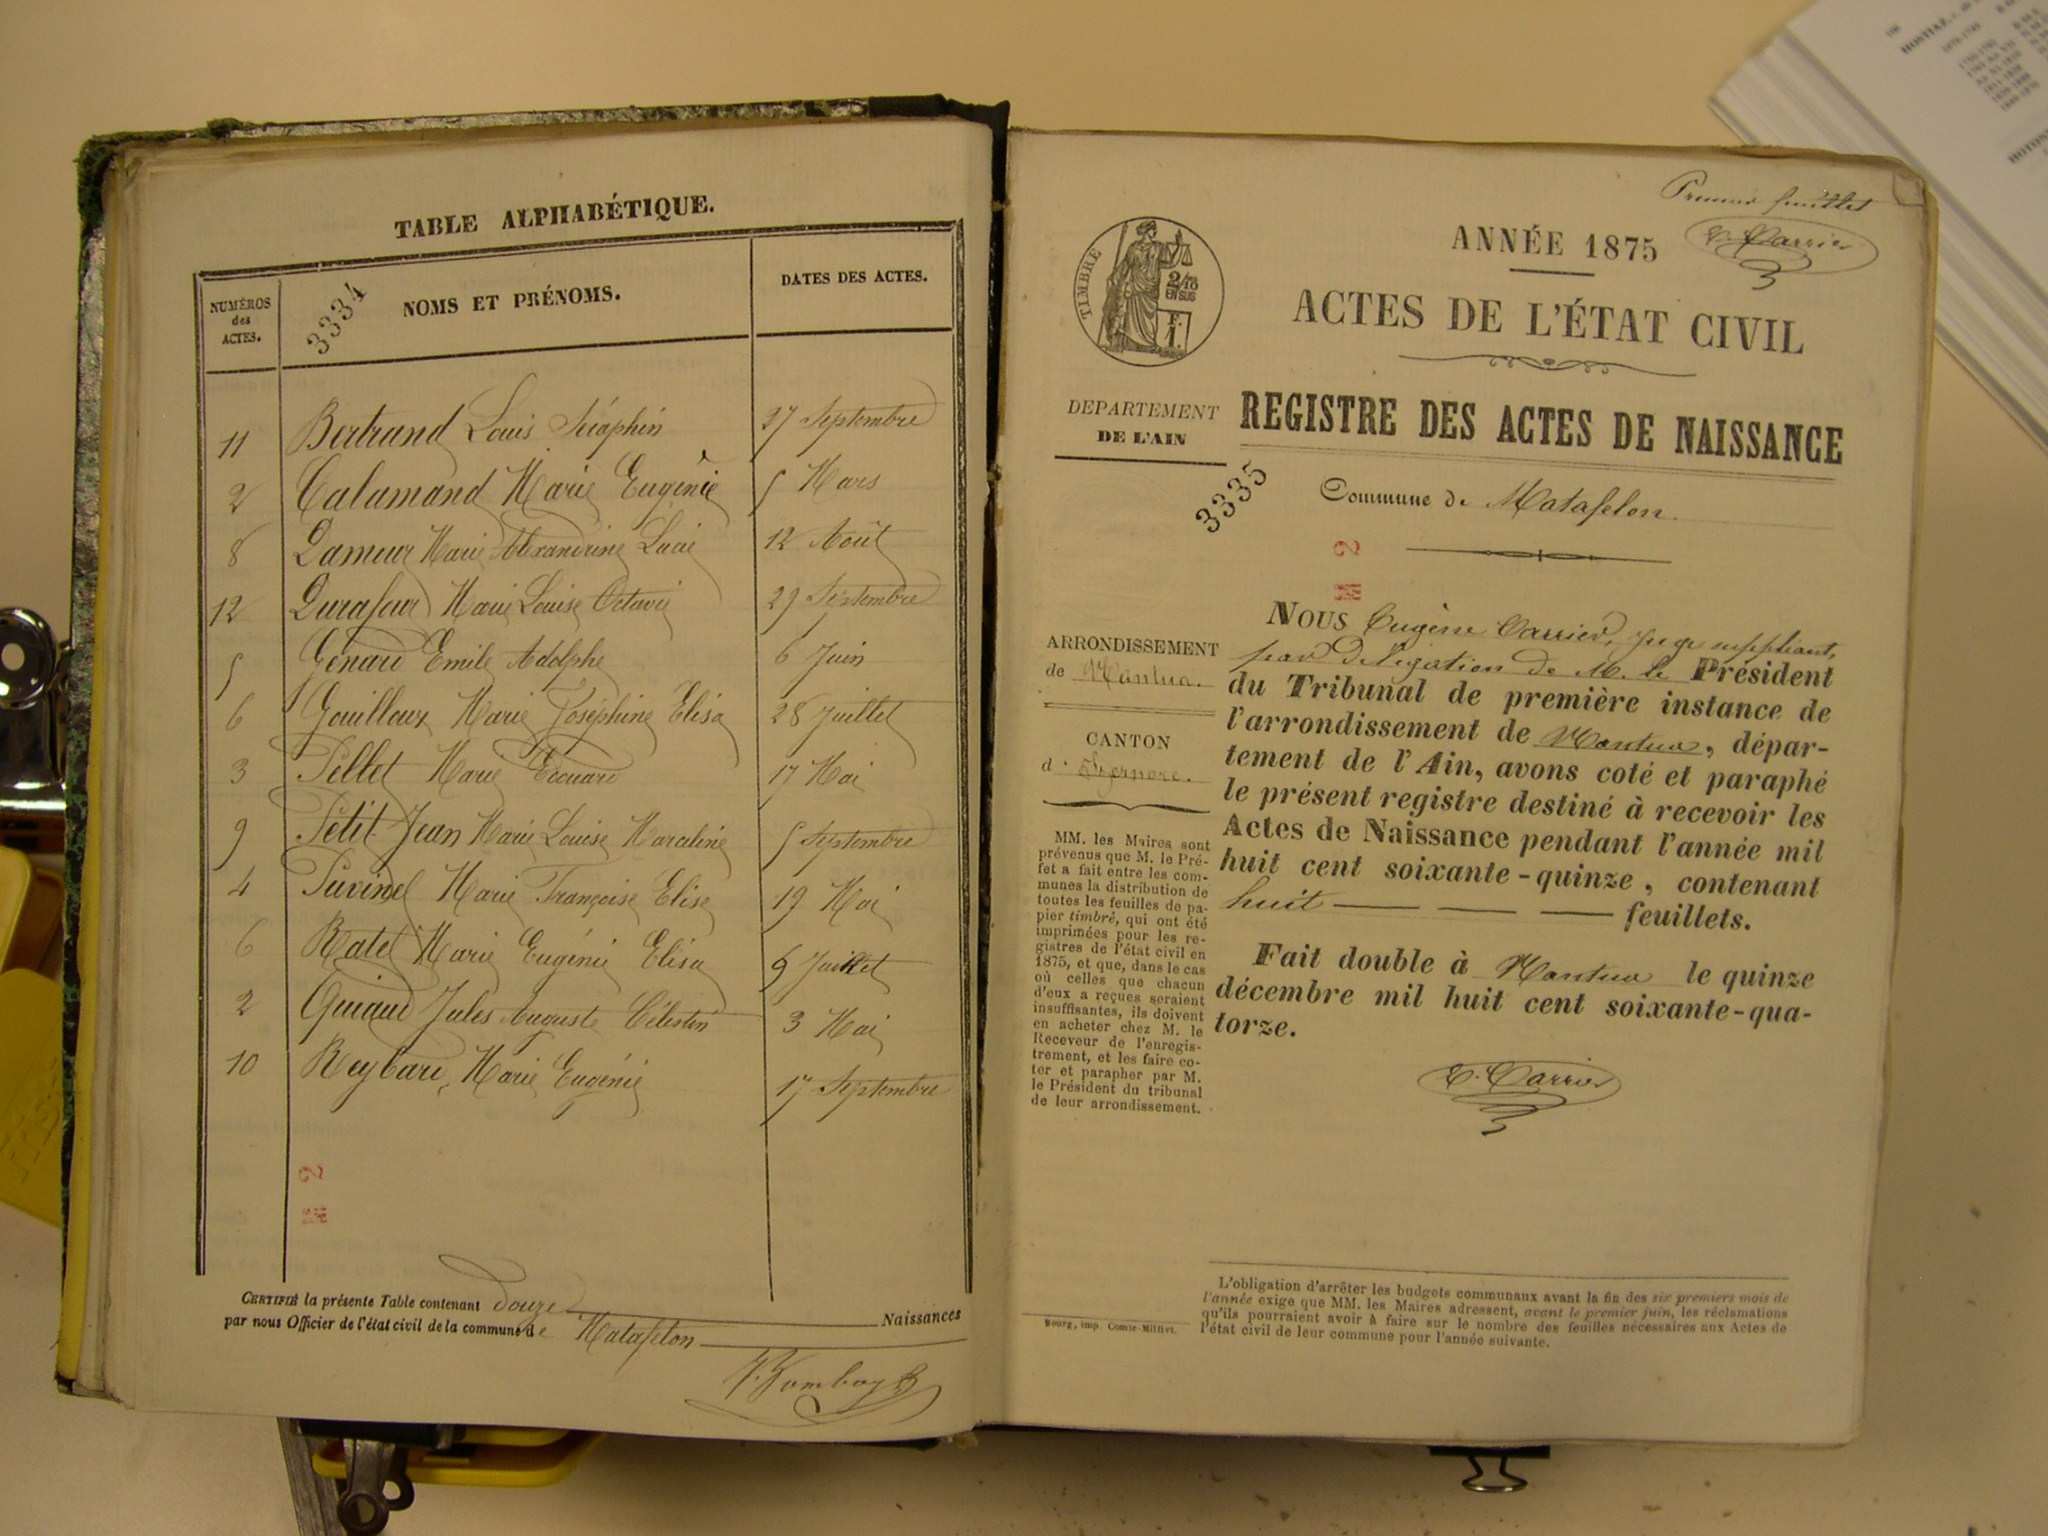 TABLE ALPHABÉTIQUE.
NUMÉROS
des
ACTES.
3334
NOMS ET PRÉNOMS.
DATES DES ACTES.
11 Bertrand Louis Séraphin 27 Septembre
2 Calamand Marie Eugénie 5 Mars
8 Dameur Marie Alexandrine Lucie 12 Août
12 Durafour Marie Louise Octavie 29 Septembre
5 Génard Emile Adolphe 6 Juin
6 Gouilloux Marie Joséphine Elisa 28 Juillet
3 Pellet Marie Edouard 17 Mai
9 Petit Jean Marie Louise Marceline 5 Septembre
4 Marie Françoise Elise 19 Mai
6 Ratel Marie Eugénie Elisa 9 Juillet
2 Jules Auguste Célestin 3 Mai
10 Marie Eugénie 17 Septembre
2
CERTIFIÉ la présente Table contenant douze Naissances
par nous Officier de l'état civil de la commune de Matafelon
Premier feuillet
E. Carrier
ANNÉE 1875
TIMBRE
2/10
EN SUS
F.
1.
ACTES DE L'ÉTAT CIVIL
DEPARTEMENT
DE L'AIN
REGISTRE DES ACTES DE NAISSANCE
3335
Commune de Matafelon.
2
ARRONDISSEMENT
de Nantua.
CANTON
d' Izernore.
MM. les Maires sont
prévenus que M. le Pré-
fet a fait entre les com-
munes la distribution de
toutes les feuilles de pa-
pier timbré, qui ont été
imprimées pour les re-
gistres de l'état civil en
1875, et que, dans le cas
où celles que chacun
d'eux a reçues seraient
insuffisantes, ils doivent
en acheter chez M. le
Receveur de l'enregis-
trement, et les faire co-
ter et parapher par M.
le Président du tribunal
de leur arrondissement.
NOUS Eugène Carrier, Juge suppléant,
par délégation de M. le Président
du Tribunal de première instance de
l'arrondissement de Nantua, dépar-
tement de l'Ain, avons coté et paraphé
le présent registre destiné à recevoir les
Actes de Naissance pendant l'année mil
huit cent soixante-quinze, contenant
huit feuillets.
Fait double à Nantua le quinze
décembre mil huit cent soixante-qua-
torze.
E. Carrier
Bourg, imp. Comte-Milliet.
L'obligation d'arrêter les budgets communaux avant la fin des six premiers mois de
l'année exige que MM. les Maires adressent, avant le premier juin, les réclamations
qu'ils pourraient avoir à faire sur le nombre des feuilles nécessaires aux Actes de
l'état civil de leur commune pour l'année suivante.